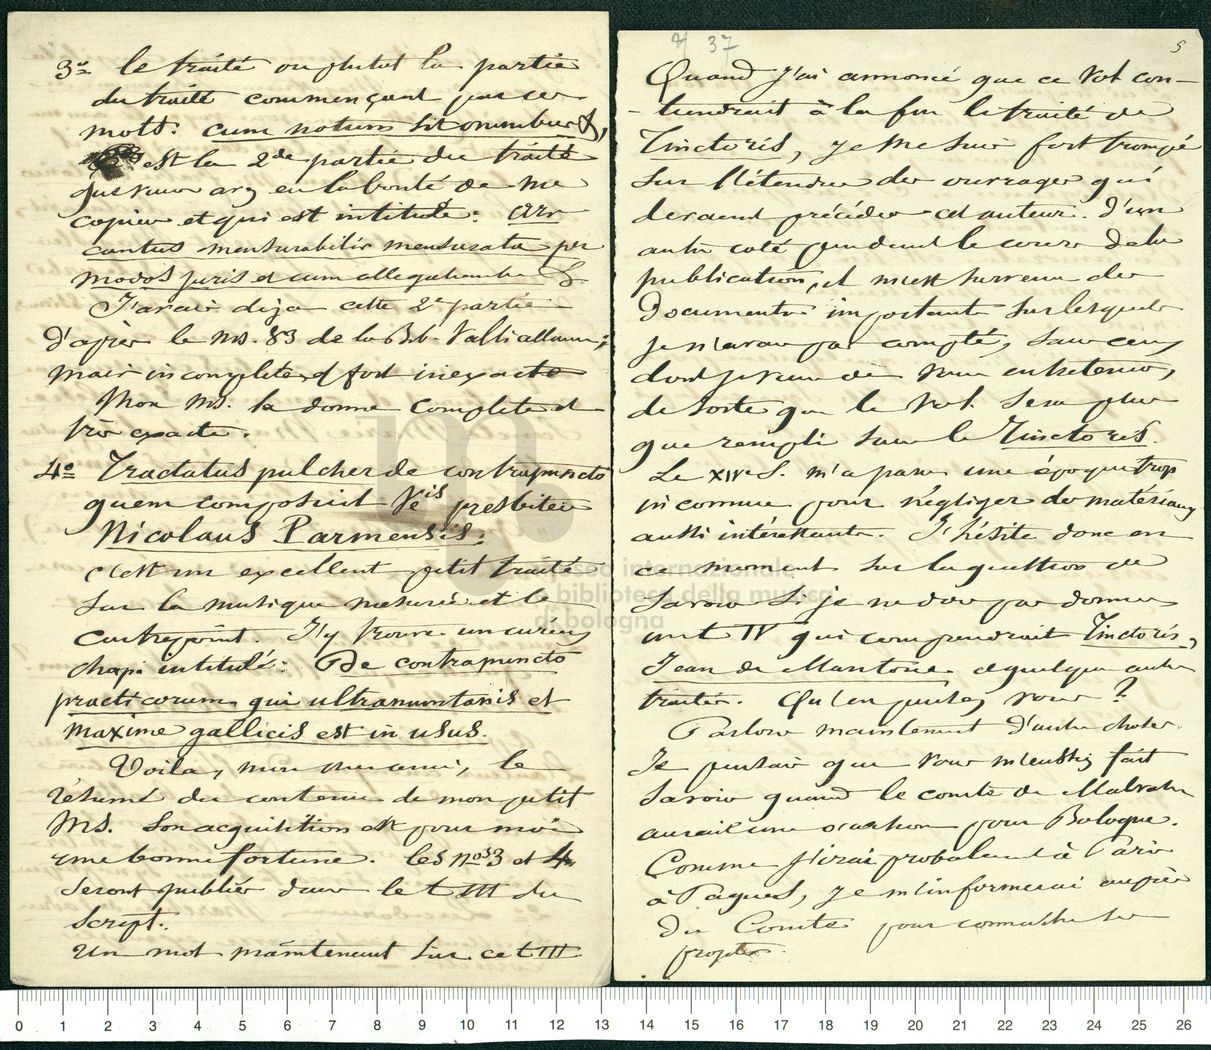 3º le traité ou plutot la partie
du traité commençant par ces
mots: cum notum sit omnibus &,
est la 2de partie du traité
que vous avez eu la bonté de me
copier et qui est intitulé: Ars
cantus mensurabilis mensurata per
modos juris et cum allegationibus &
J'avais deja cette 2e partie
d'après le ms. 83 de la Bib. Vallicellane;
mais incomplète, et fort inexacte
Mon ms. la donne complete et
très exacte.
4º Tractatus pulcher de contrapuncto
quem composuit presbiter
Nicolaus Parmensis:
c'est un excellent petit traité
sur la musique mesurée et le
contrepoint. J'y trouve un curieux
chap. intitulé: De contrapuncto
practicorum qui ultramontanis et
maxime gallicis est in usus.
Voila, mon cher ami, le
résumé du contenu de mon petit
Ms. Son acquisition est pour moi
une bonne fortune. Les nos 3 et 4
seront publiés dans le t III du
Script.
Un mot maintenant sur ce t III
4/ 37
5
Quand j'ai annoncé que ce vol con-
-tiendrait à la fin le traité de
Tinctoris, je me suis fort trompé
sur l'étendue des ouvrages qui
devaient précéder cet auteur. D'un
autre coté pendant le cours de la
publication, il m'est survenu des
documents important sur lesquels
je n'avais pas compté, sans ceux
dont je viens de vous entretenir,
de sorte que le vol. sera plus
que rempli sans le Tinctoris.
Le XIVe S. m'a paru une époque trop
inconnue pour négliger des matériaux
aussi intéressants. J'hésite donc en
ce moment sur la question de
savoir si je ne dois pas donner
un t IV qui comprendrait Tinctoris,
Jean de Mantoue et quelques autres
traités. Qu'en pensez vous?
Parlons maintenant d'autre choses.
Je pensais que vous m'eussiez fait
savoir quand le comte de
aurait une ocasion pour Bologne.
Comme j'irai probablement à Paris
à Paques, je m'informerai auprès
du Comte pour connaitre ses
projets.
museo internazionale
e biblioteca della musica
di bologna
0 1 2 3 4 5 6 7 8 9 10 11 12 13 14 15 16 17 18 19 20 21 22 23 24 25 26